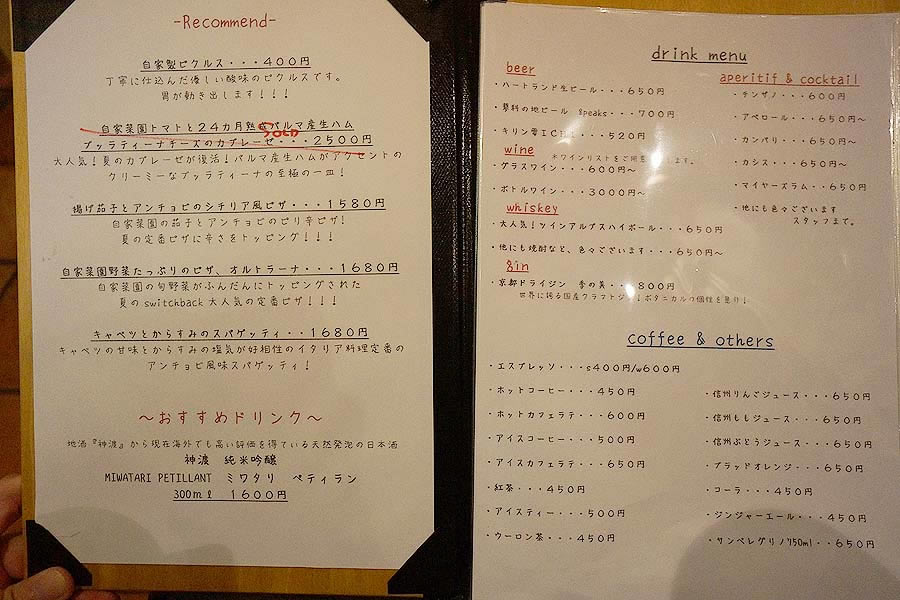 -Recommend-
自家製ピクルス・・・400円
丁寧に仕込んだ優しい酸味のピクルスです。
胃が動き出します!!!
自家菜園トマトと24カ月熟成パルマ産生ハム
SOLD
ブッラティーナチーズのカプレーゼ・・・2500円
大人気!夏のカプレーゼが復活!パルマ産生ハムがアクセントの
クリーミーなブッラティーナの至極の一皿!
揚げ茄子とアンチョビのシチリア風ピザ・・・1580円
自家菜園の茄子とアンチョビのピリ辛ピザ!
夏の定番ピザに辛さをトッピング!!!
自家菜園野菜たっぷりのピザ、オルトラーナ・・・1680円
自家菜園の旬野菜がふんだんにトッピングされた
夏のswitchback大人気の定番ピザ!!!
キャベツとからすみのスパゲッティ・・1680円
キャベツの甘味とからすみの塩気が好相性のイタリア料理定番の
アンチョビ風味スパゲッティ!
～おすすめドリンク～
地酒『神渡』から現在海外でも高い評価を得ている天然発泡の日本酒
神渡 純米吟醸
MIWATARI PETILLANT ミワタリ ペティラン
300ml 1600円
drink menu
beer
・ハートランド生ビール・・・650円
・蓼科の地ビール 8peaks・・・700円
・キリン零ICHI・・・520円
wine
※ワインリストをご用意 します。
・グラスワイン・・・600円～
・ボトルワイン・・・3000円～
whiskey
・大人気!ツインアルプスハイボール・・・650円
・他にも焼酎など、色々ございます・・・650円～
gin
・京都ドライジン 季の美・・800円
世界に誇る国産クラフトジン!ボタニカルの個性を是り!
aperitif & cocktail
・チンザノ・・・600円
・アペロール・・・650円～
・カンパリ・・・650円～
・カシス・・・650円～
・マイヤーズラム・・650円
・他にも色々ございます
スタッフまで。
coffee & others
・エスプレッソ・・・s400円/w600円
・ホットコーヒー・・・450円
・ホットカフェラテ・・・600円
・アイスコーヒー・・・500円
・アイスカフェラテ・・・650円
・紅茶・・・450円
・アイスティー・・・500円
・ウーロン茶・・・450円
・信州りんごジュース・・・650円
・信州ももジュース・・・650円
・信州ぶとうジュース・・・650円
・ブラッドオレンジ・・・650円
・コーラ・・・450円
・ジンジャーエール・・・450円
・サンペレグリノ750ml・・650円